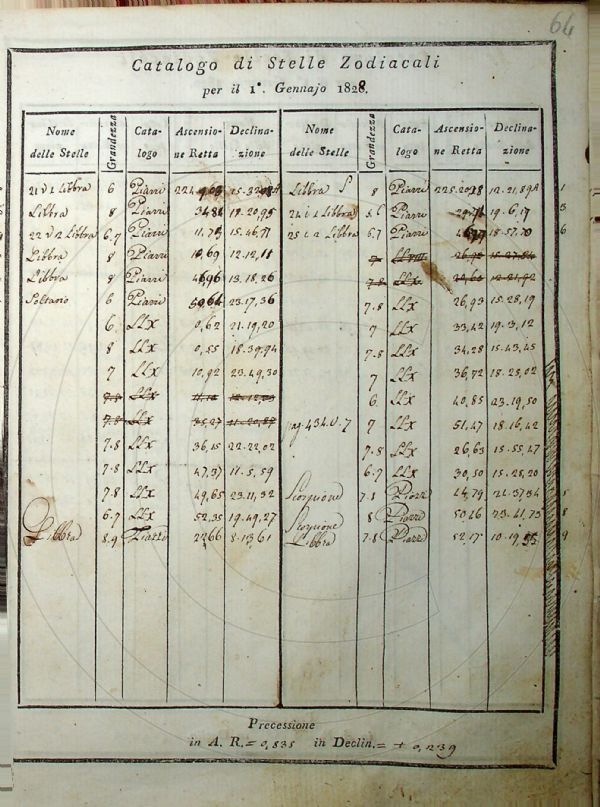 64
Catalogo di Stelle Zodiacali
per il 1°. Gennajo 1828.
Nome delle Stelle Grandezza Cata-logo Ascensio-ne Retta Declina-zione Nome delle Stelle Grandezza Cata-logo Ascensio-ne Retta Declina-zione
21 ν 1 Libbra 6 Piazzi Libbra 8 Piazzi 12.21,89A 1
Libbra 8 Piazzi 18.20,95 24 ι 1 Libbra 5.6 Piazzi 19.6,17 3
22 ν 2 Libbra 6.7 Piazzi 15.46,71 25 ι 2 Libbra 6.7 Piazzi 18.57,70 6
Libbra 8 Piazzi 12.12,11 7
Libbra 8 Piazzi 13.18,26 7.8 LLX
Soltario 6 Piazzi 23.17,36 7.8 LLX 26,93 15.28,19
6 LLX 0,62 21.19,20 7 LLX 33,42 19.3,12
8 LLX 0,55 18.39,94 7.8 LLX 34,28 15.43,45
7 LLX 10,92 23.49,30 7 LLX 36,72 18.28,02
7.8 LLX 6 LLX 40,85 23.19,50
7.8 LLX 35,27 11.20,87 pag. 434. 7 LLX 51,47 18.16,42
7.8 LLX 36,15 22.22,02 7.8 LLX 26,63 15.55,47
7.8 LLX 47,37 11.5,59 6.7 LLX 30,50 15.28,20
7.8 LLX 49,65 23.11,32 Scorpione 7.8 Piazzi 44,79 21.37,34 5
6.7 LLX 52,35 19.49,27 Scorpione 8 Piazzi 23.41,73 8
Libbra 8.9 Piazzi 8.13,61 Libbra 7.8 Piazzi 52,17 9
Precessione
in A. R. = 0,835 in Declin. = + 0,239